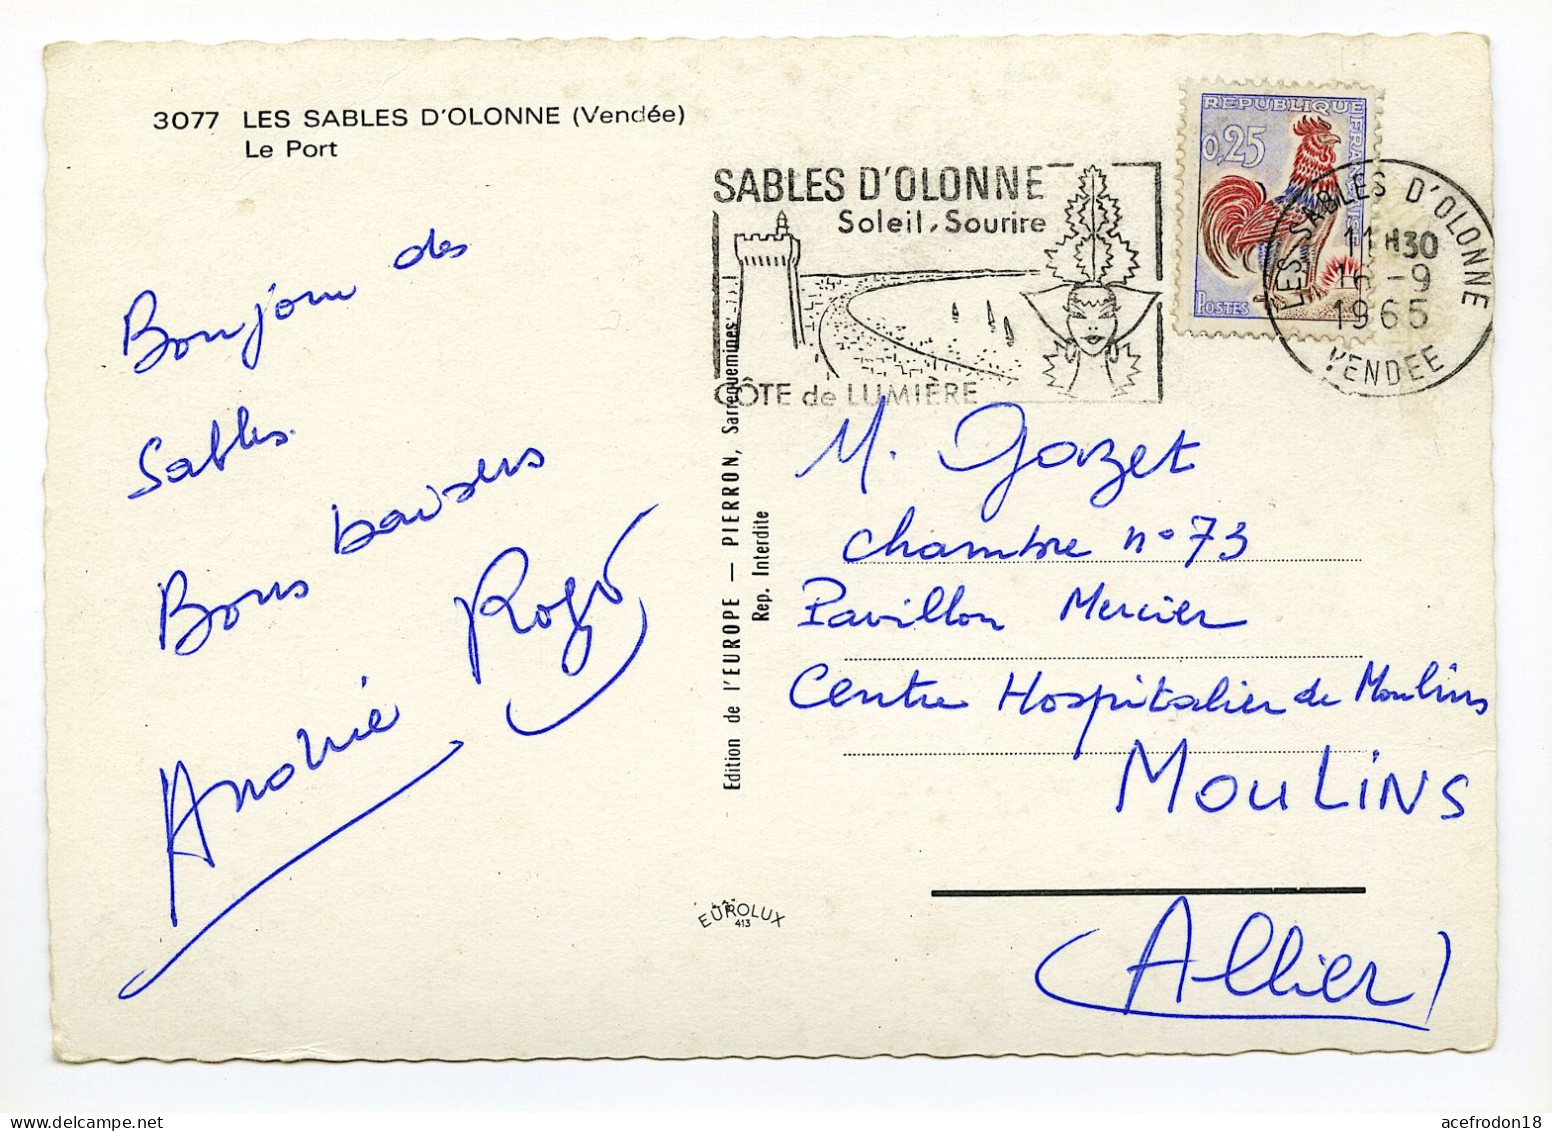 3077 LES SABLES D'OLONNE (Vendée)
Le Port
Bonjour des
Sables.
Bons baisers
Andrée Roger
Edition de l'EUROPE — PIERRON, Sarreguemines
Rep. Interdite
EUROLUX
413
SABLES D'OLONNE
Soleil, Sourire
CÔTE de LUMIÈRE
REPUBLIQUE FRANCAISE
0,25
POSTES
LES SABLES D'OLONNE
11H30
16-9
1965
VENDEE
M. Gazet
chambre n° 73
Pavillon Mercier
Centre Hospitalier de Moulins
MOULINS
(Allier)
acefrodon18